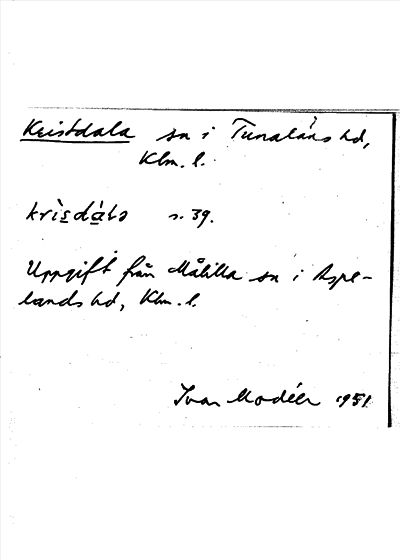 Kristdala sn i Tunaläns hd,
Klm. l.
krìsdàla s. 39.
Uppgift från Målilla sn i Aspe-
lands hd, Klm. l.
Ivar Modéer 1951